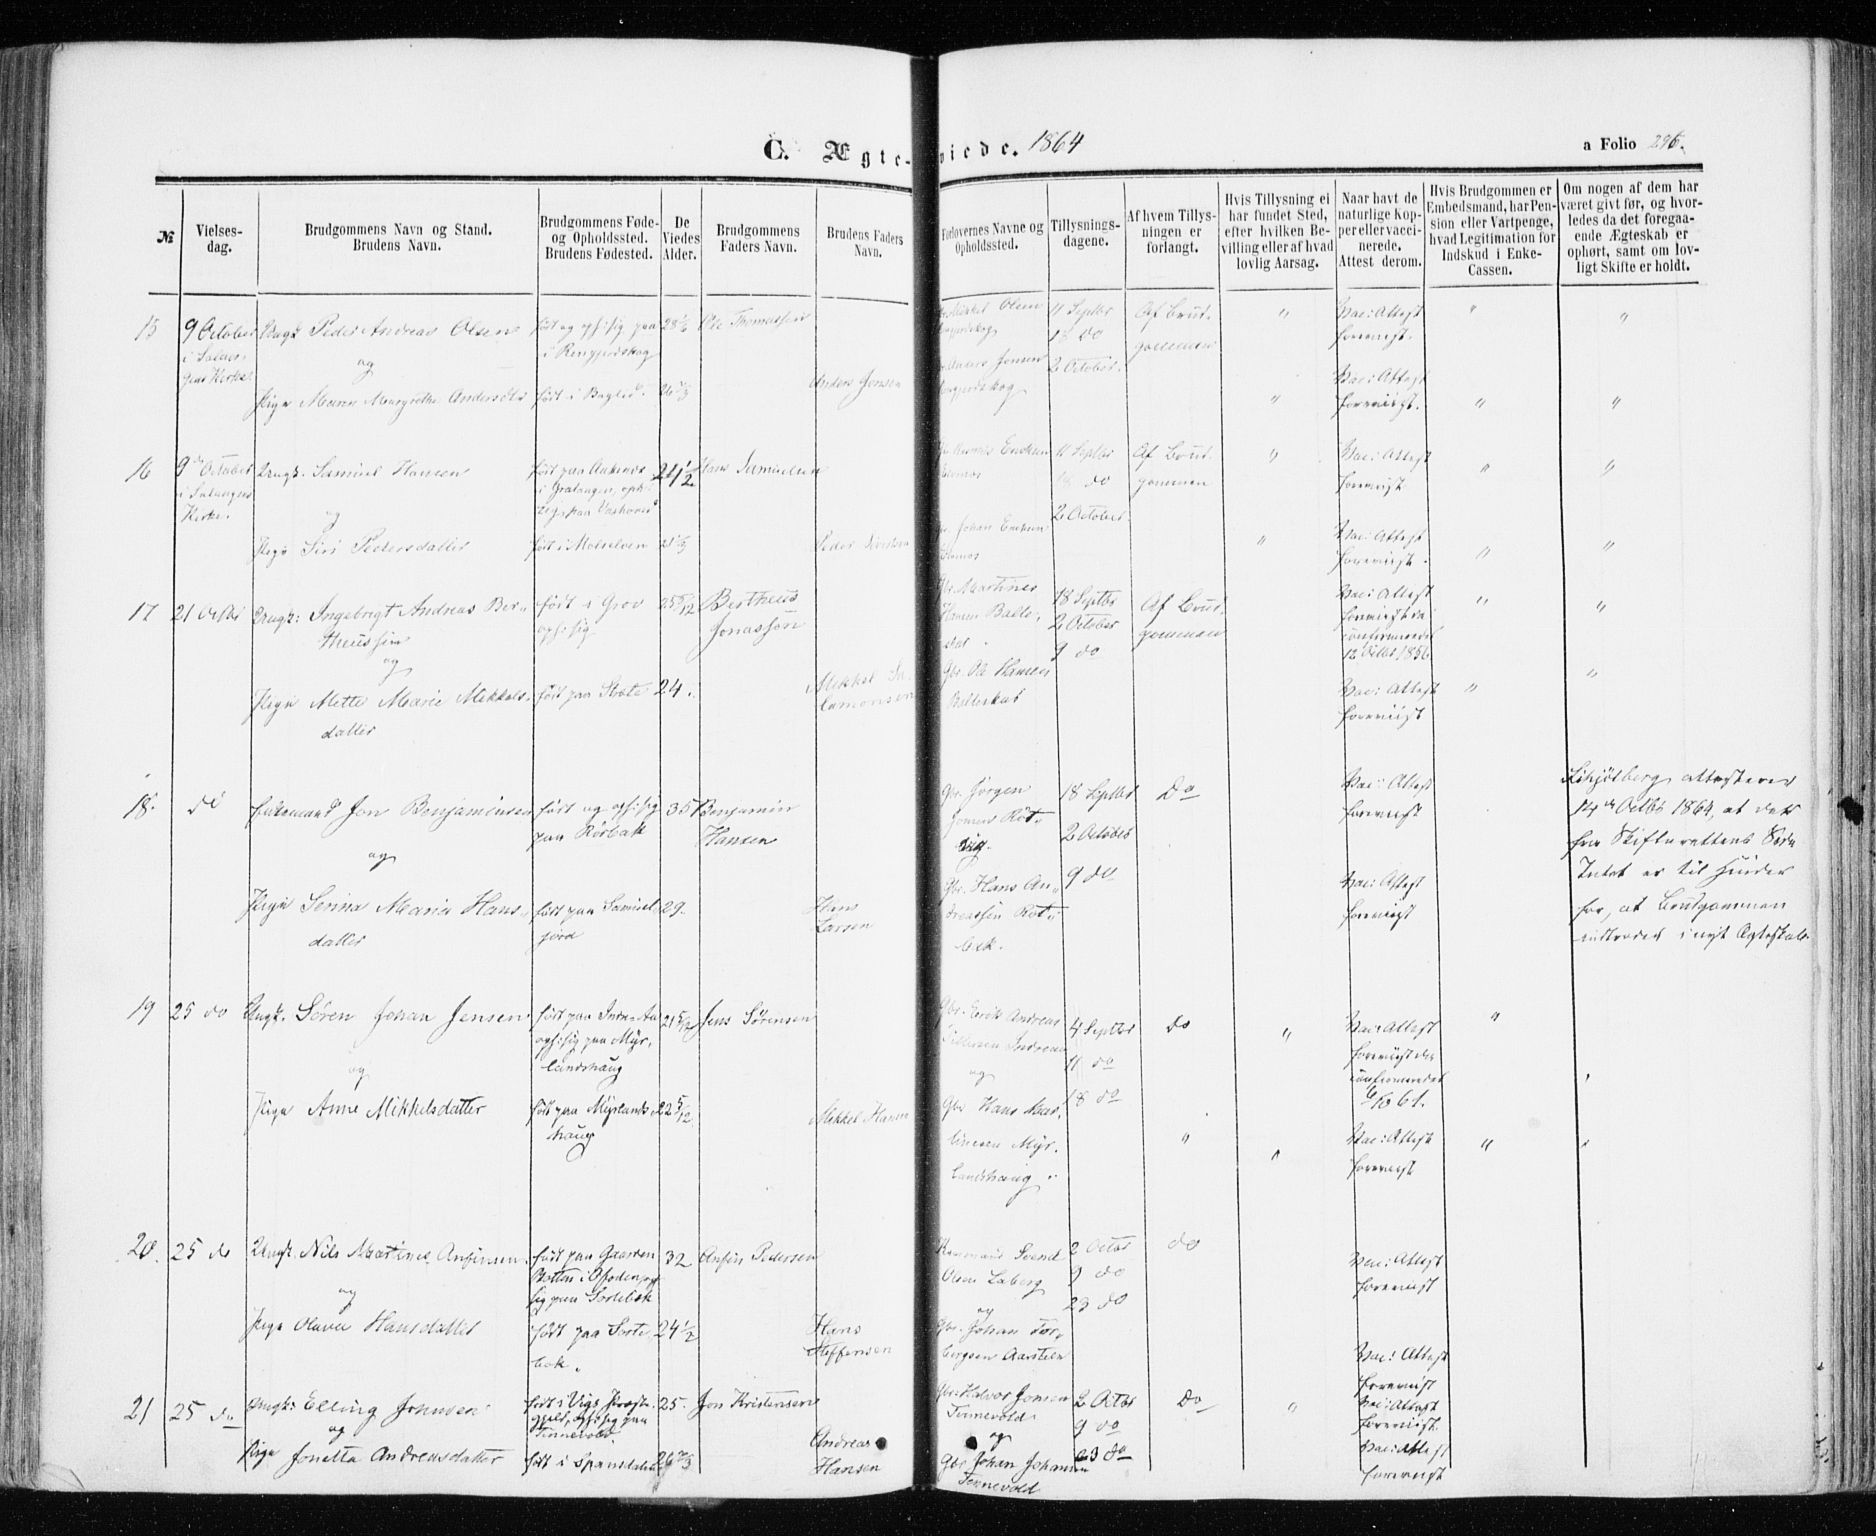 C. Ægte-viede. 1864
a Folio 296.
№
Vielses-
dag.
Brudgommens Navn og Stand.
Brudens Navn.
Brudgommens Føde-
og Opholdssted.
Brudens Fødested.
De
Viedes
Alder.
Brudgommens
Faders Navn.
Brudens Faders
Navn.
Forlovernes Navne og
Opholdssted.
Tillysnings-
dagene.
Af hvem Tillys-
ningen er
forlangt.
Hvis Tillysning ei
har fundet Sted,
efter hvilken Be-
villing eller af hvad
lovlig Aarsag.
Naar havt de
naturlige Kop-
per eller vacci-
nerede.
Attest derom.
Hvis Brudgommen er
Embedsmand, har Pen-
sion eller Vartpenge,
hvad Legitimation for
Indskud i Enke-
Cassen.
Om nogen af dem har
været givt før, og hvor-
ledes da det foregaa-
ende Ægteskab er
ophørt, samt om lov-
ligt Skifte er holdt.
15
9 October
i Salan-
gens Kirke.
Ungk. Peder Andreas Olsen
og
Pige Maren Margrethe Andersdtr
født i
Ole Thomassen
Anders Jensen
Mikkel Olsen
11 Septbr
18 do
2 October.
Af Brud-
gommen
Vac: Attest
foreviist.
Vac: Attest
foreviist.
16
9de October
i Salangens
Kirke.
Ungk. Samuel Hansen
og
Pige Siri Pedersdatter
født i Malselven
24 1/2
Hans Samuelsen
Johan
11 Septbr
18 do
2 October
Af Brud-
gommen
Vac: Attest
foreviist.
Vac: Attest
foreviist.
17
21 Octbr
Ungk: Ingebrigt Andreas Ber-
theussen
og
Pige Mette Marie Mikkels-
datter
født i Grov
oph: sig
født paa
25 5/12
24.
Bertheus
Jonassen
Mikkel Sa-
lamonsen
Gbr. Martines
Hansen Balte-
skar.
Gbr. Ole Hansen
Balteskar
18 Septbr
2 October
9 do
Af Brud-
gommen
Vac: Attest
foreviist
confirmeret
12 Octbr 1856
Vac: Attest
foreviist
18.
do
Enkemand Jon Benjaminsen
og
Pige Serina Maria Hans-
datter
født og oph: sig
paa Rørbak
født paa Samuel-
jord
35
29.
Benjamin
Hansen
Hans
Larsen
Gbr. Jørgen
Gbr. Hans An-
dreassen Røt-
bak.
18 Septbr
2 October
9 do
Do
Vac: Attest
foreviist
Vac: Attest
foreviist
attesterer
14de Octbr 1864, at der
fra Skifterettens Side
Intet er til Hinder
for, at Brudgommen
indtræder i nyt Ægteskab.
19
25 do
Ungk. Søren Johan Jensen
og
Pige Anne Mikkelsdatter
født paa Indre-Aa
oph: sig paa Myr-
landshaug
født paa Myrlands-
haug
21 5/12
22 5/12
Jens Sørensen
Mikkel Hansen
Gbr. Erik Andreas
og
Gbr Hans Mar-
tinesen Myr-
landshaug.
4 Septbr
11 do
18 do
do
Vac: Attest
foreviist
confirmeret
61.
Vac: Attest
foreviist
20.
25 do
Ungk. Nils Martines Anfinsen
og
Pige Olava Hansdatter
født paa Gaarden
Botten i Ofoden, oph:
sig paa Sortebæk
født paa Sorte-
bæk.
32
24 1/2
Anfin Pedersen
Hans
Steffensen
Svend
Olsen Laberg
og
Gbr. Johan Tor-
bergsen Aarstein
2 Octbr
9 do
23 do
do
Vac: Attest
foreviist
Vac: Attest
foreviist
21
25 do
Ungk: Elling Johnsen
og
Pige Jonetta Andreasdatter
født i Vigs Præste-
gjeld, oph: sig paa
Tennevold
født i Spansdalen
25
Jon Kristensen
Andreas
Hansen
Gbr. Halvor Jonsen
Tennevold
og
Gbr Johan Johansen
Tennevold
2 Octbr
9 do
23 do
Do
Vac: Attest
foreviist.
Vac: Attest
foreviist